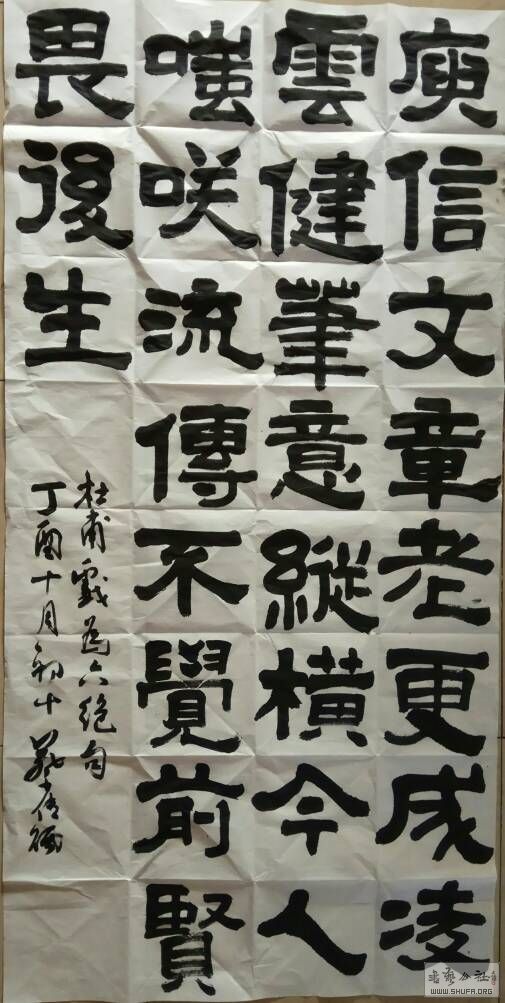 庾信文章老更成凌
雲健筆意縱橫今人
嗤咲流傳不覺前賢
畏後生
杜甫戲為六絕句
丁酉十月初十
书艺公社
WWW.SHUFA.ORG